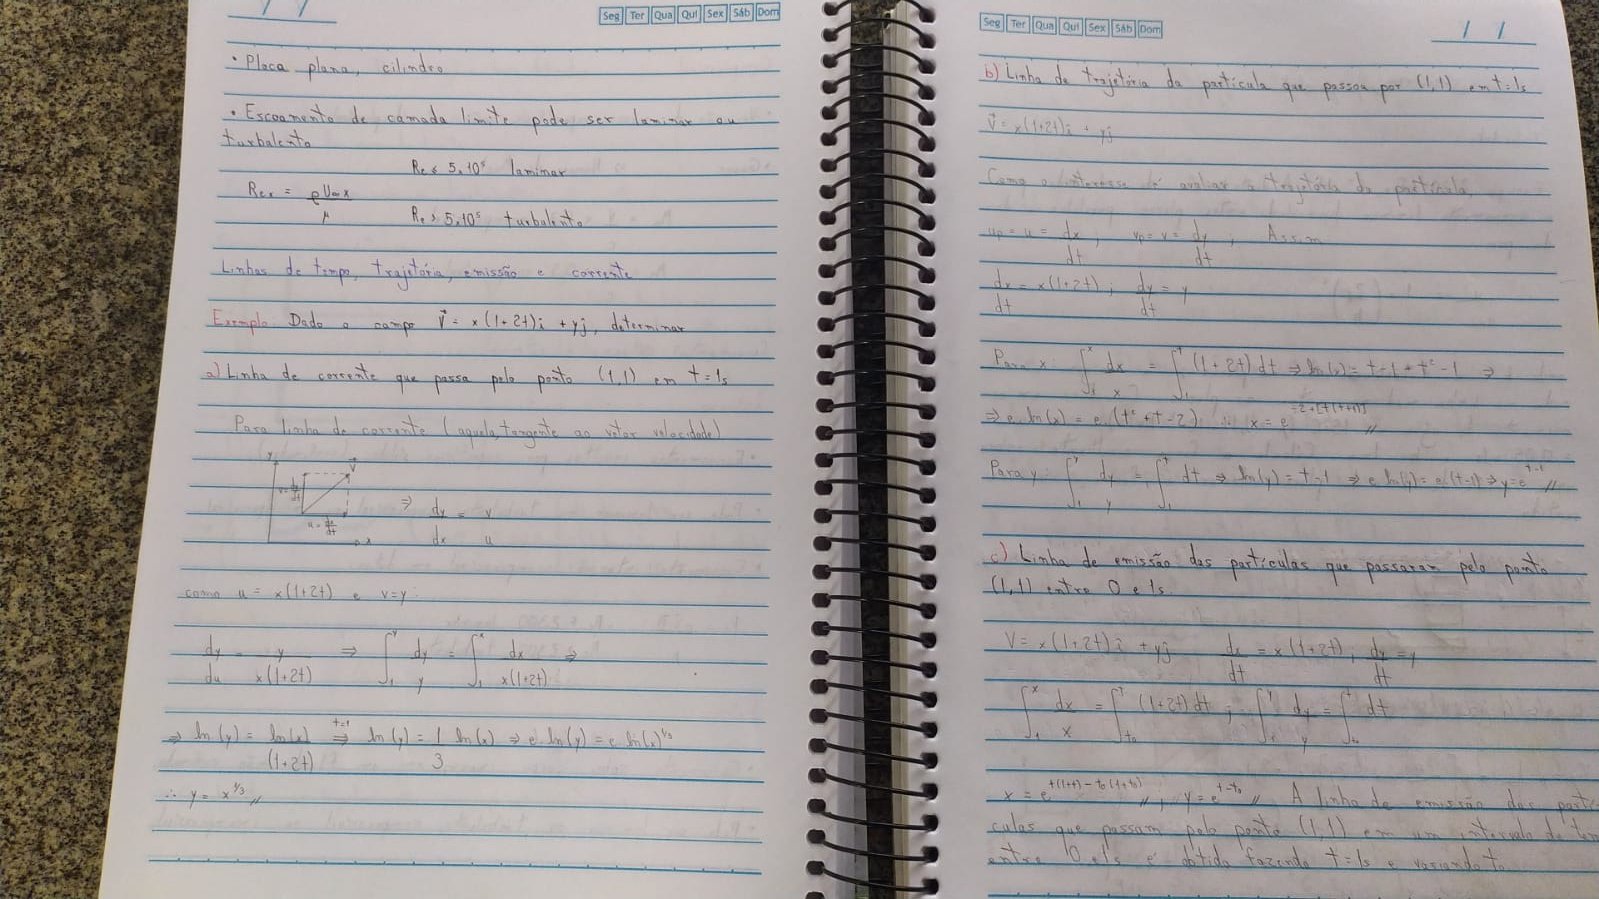 / /
Seg Ter Qua Qui Sex Sáb Dom
• Placa plana, cilindro
• Escoamento de camada limite pode ser laminar ou
turbulento
Re ≤ 5.10⁵ laminar
Reₓ = ρU∞x / μ
Re > 5.10⁵ turbulento
Linhas de tempo, trajetória, emissão e corrente
Exemplo Dado o campo V⃗ = x(1+2t)i + yj, determinar
a) Linha de corrente que passa pelo ponto (1,1) em t=1s
Para linha de corrente (aquela tangente ao vetor velocidade)
y V⃗
v = dy/dt
u = dx/dt x
⇒ dy/dx = v/u
como u = x(1+2t) e v=y
dy/du = y/x(1+2t) ⇒ ∫₁ʸ dy/y = ∫₁ˣ dx/x(1+2t) ⇒
⇒ ln(y) = ln(x)/(1+2t) ⇒ᵗ⁼¹ ln(y) = 1/3 ln(x) ⇒ e ln(y) = e ln(x)^1/3
∴ y = x^1/3 //
Seg Ter Qua Qui Sex Sáb Dom
/ /
b) Linha de trajetória da partícula que passou por (1,1) em t=1s
V⃗ = x(1+2t)i + yj
Como o interesse é avaliar a trajetória da partícula,
up = u = dx/dt, vp = v = dy/dt, Assim
dx/dt = x(1+2t) ; dy/dt = y
Para x: ∫₁ˣ dx/x = ∫₁ᵗ (1+2t) dt ⇒ ln(x) = t-1+t²-1 ⇒
⇒ e ln(x) = e (t²+t-2) ∴ x = e^-2+[t(1+t)] //
Para y: ∫₁ʸ dy/y = ∫₁ᵗ dt ⇒ ln(y) = t-1 ⇒ e ln(y) = e(t-1) ⇒ y = e^t-1 //
c) Linha de emissão das partículas que passaram pelo ponto
(1,1) entre 0 e 1s
V = x(1+2t)i + yj dx/dt = x(1+2t), dy/dt = y
∫₁ˣ dx/x = ∫t₀ᵗ (1+2t) dt ; ∫₁ʸ dy/y = ∫t₀ᵗ dt
x = e^t(1+t) - t₀(1+t₀) // ; y = e^t-t₀ // A linha de emissão das partí
culas que passam pelo ponto (1,1) em um intervalo de tem
entre 0 e 1s é obtida fazendo t=1s e variando t₀